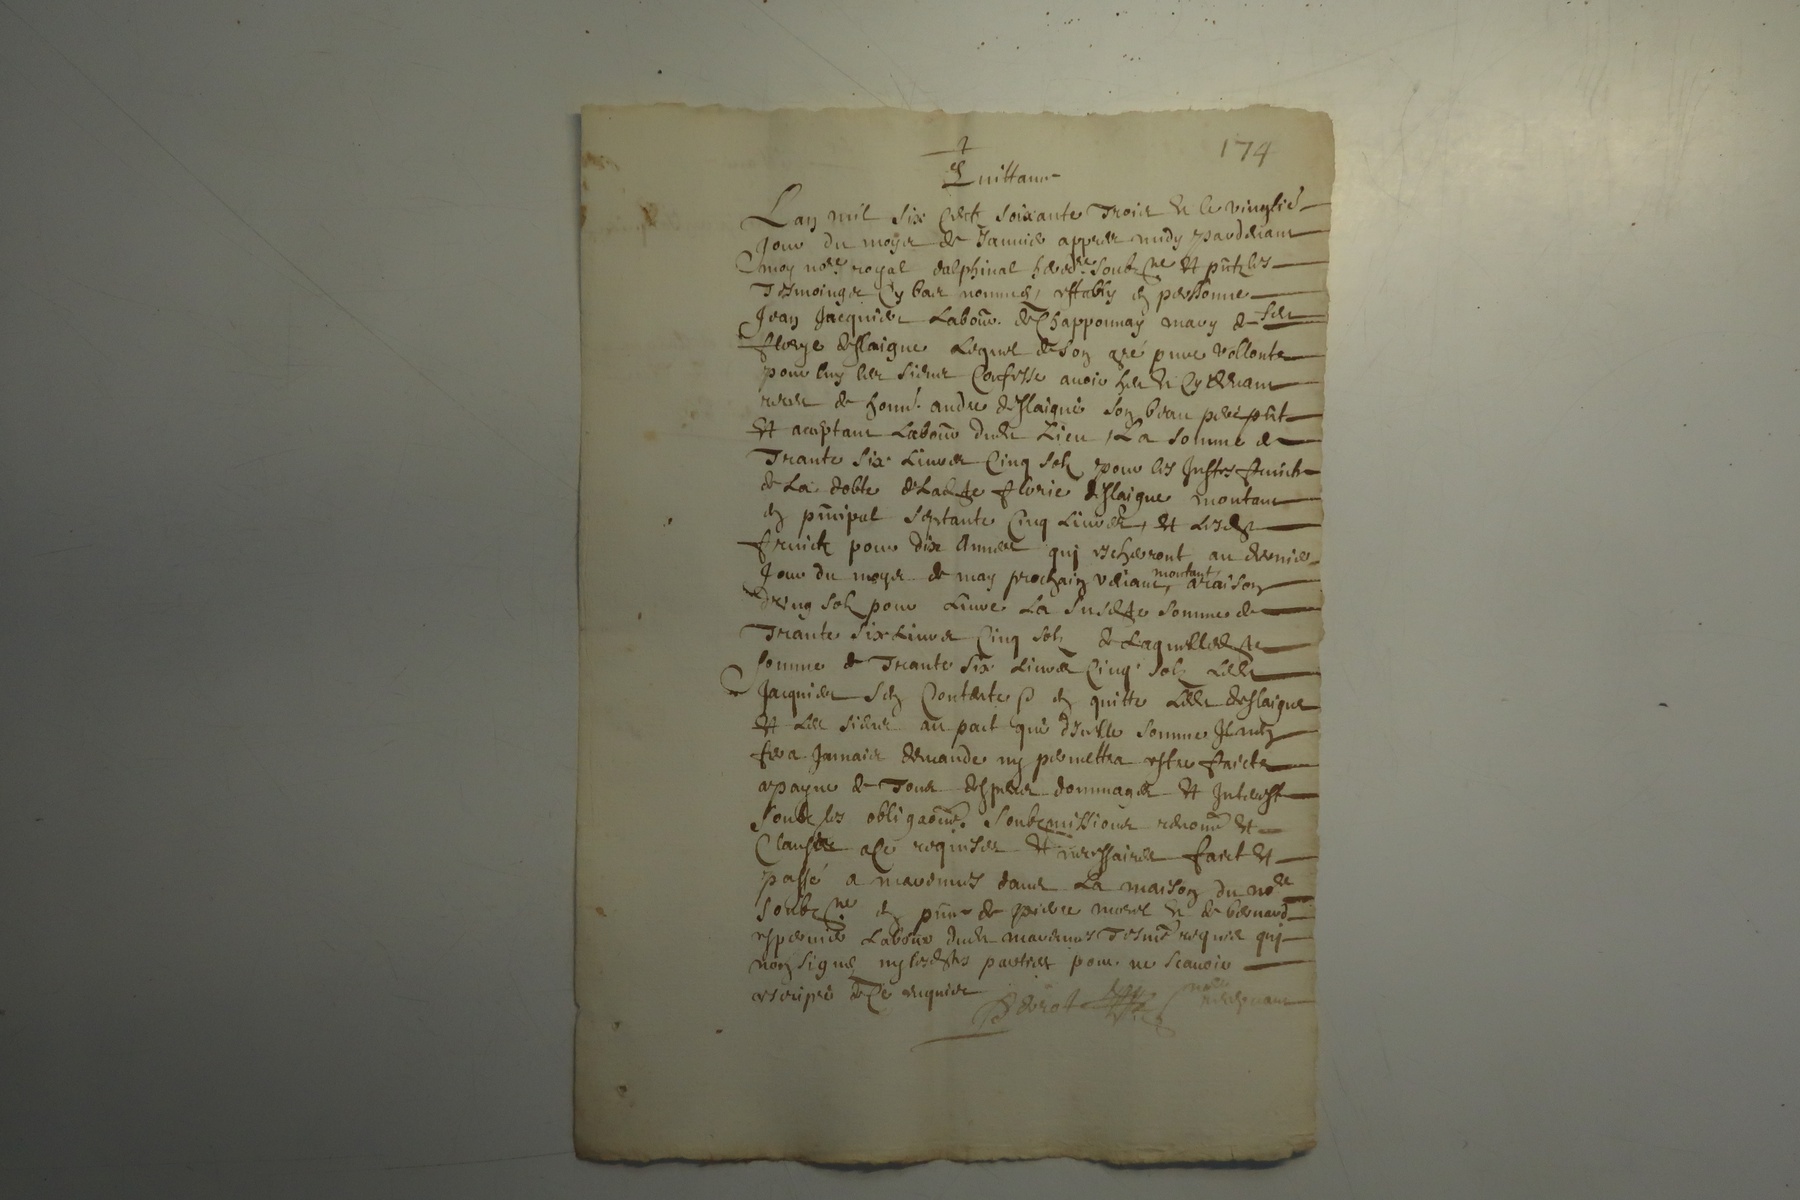 174
Quittance
Lan mil six centz soixante trois et le vingtie
Jour du moys de Janvier appres midy pardevant
moy nore royal dalphinal hered.re soubz.ne et pntz les
Tesmoingz cy bas nommes, estably en personne
Jean Jacquier Labour. de Chapponnay mary de
florye deslaigue Lequel de son gré pure vollonte
pour luy les siens Confesse avoir heu et cy devant
receu de honn. andre deslaigue son beau pere pnt
et aceptant Labour dudt Lieu, La somme de
Trante six Livres Cinq solz pour les Justes fruictz
de La dotte de Ladte florie deslaigue montant
en pnipal septante Cinq Livres, et lesdts
fruictz pour dix annees qui escherront au dernier
Jour du moys de may prochain venant, montant a raison
dung solz pour Livre La susdte somme de
Trante six Livres Cinq solz de Laquelle dte
somme de Trante six Livres Cinq solz Ledt
Jacquier sen Contente en quitte Ledt deslaigue
et Les siens au pact que dicelle somme Il nen
fera Jamais demande ny permettra estre faicte
a payne de Tous despens dommages et Interestz
Soubz les obligaons. soubzmissions renon et
Clauses ace requises et necessaires faict et
passé a marennes dans La maison du nore
soubz.ne en pnce de pierre morel et de bernard
Labour dudt marennes Tesm requis qui
nont signe ny lesdtes parties pour ne scavoir
de Ce enquis